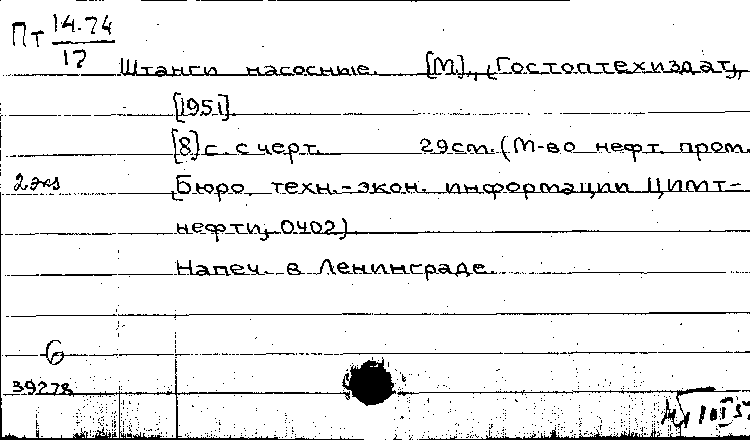 Пт 14.74
17
Штанги насосные. [М.], [Гостоптехиздат],
[1951].
[8] с. с черт. 29 см. (М-во нефт. пром.
2 экз
Бюро техн.-экон. информации ЦИМТ-
нефти, 0402).
Напеч. в Ленинграде.
6
39278